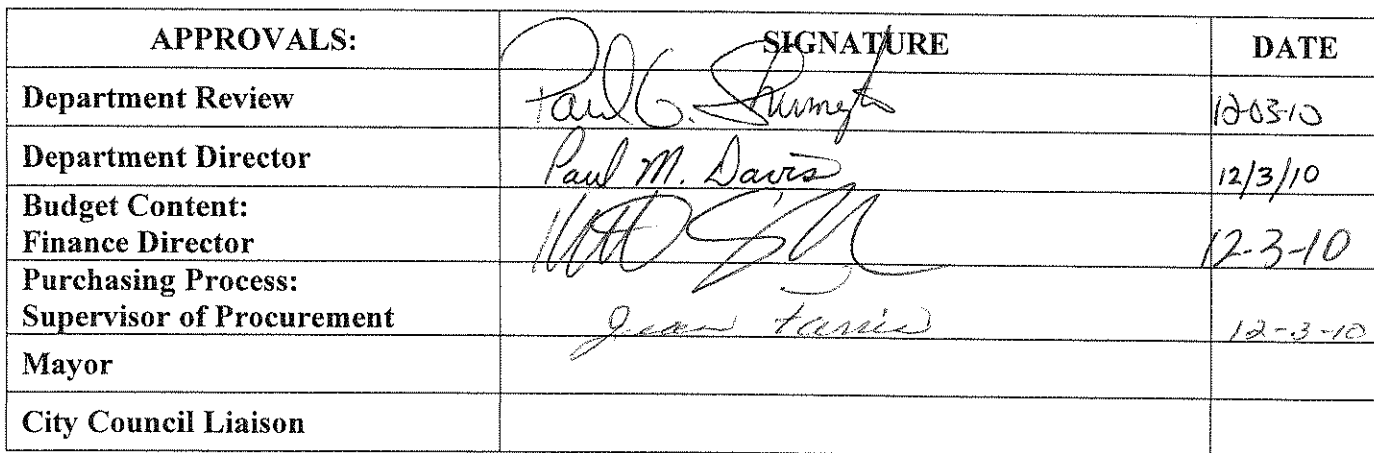 APPROVALS: SIGNATURE DATE
Department Review Paul G. 12-03-10
Department Director Paul M. Davis 12/3/10
Budget Content:
Finance Director 12-3-10
Purchasing Process:
Supervisor of Procurement Jean Farris 12-3-10
Mayor
City Council Liaison